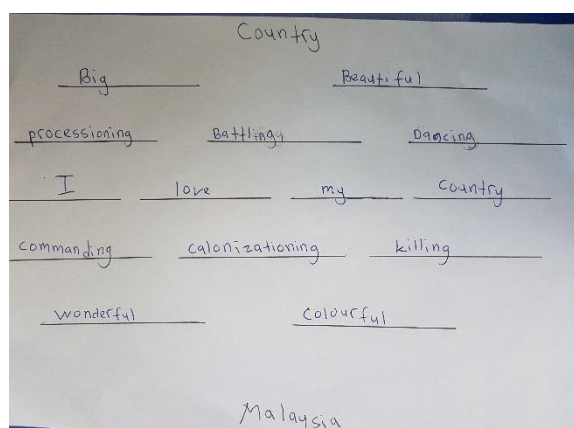 Country
Big Beautiful
processioning Battling, Dancing
I love my Country
Commanding calonizationing killing
wonderful Colourful
Malaysia